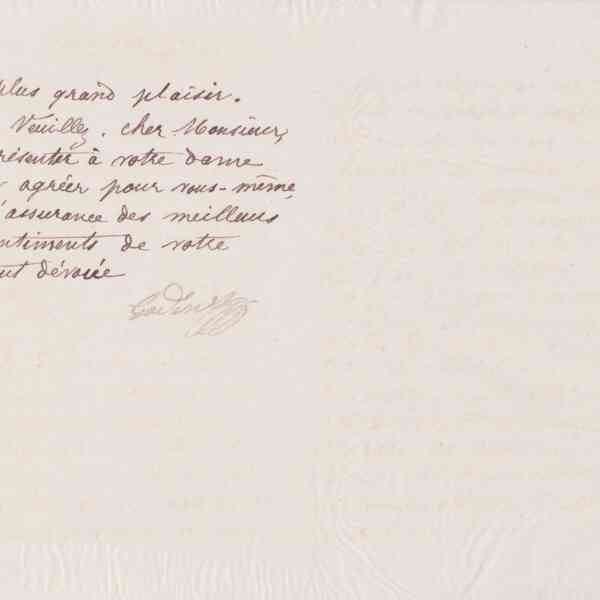 plus grand plaisir.
Veuillez, cher Monsieur,
résenter à votre dame
agréer pour vous-même
'assurance des meilleurs
ntiments de votre
out dévoué
Godin